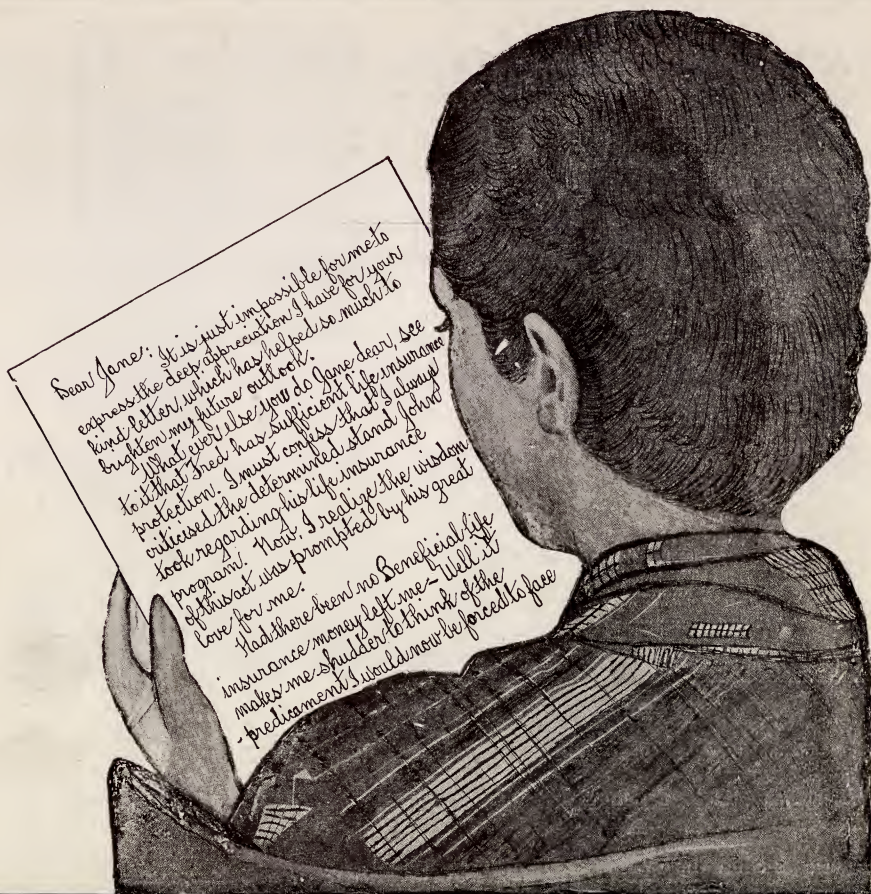 Dear Jane: It is just impossible for me to
express the deep appreciation I have for your
kind letter which has helped so much to
brighten my future outlook.
What ever else you do Jane dear, see
to it that Fred has sufficient life insurance
protection. I must confess that I always
criticised the determined stand John
took regarding his life insurance
program. Now I realize the wisdom
of this act was prompted by his great
love for me.
Had there been no Beneficial life
insurance money left me - Well it
makes me shudder to think of the
- predicament I would now be forced to face